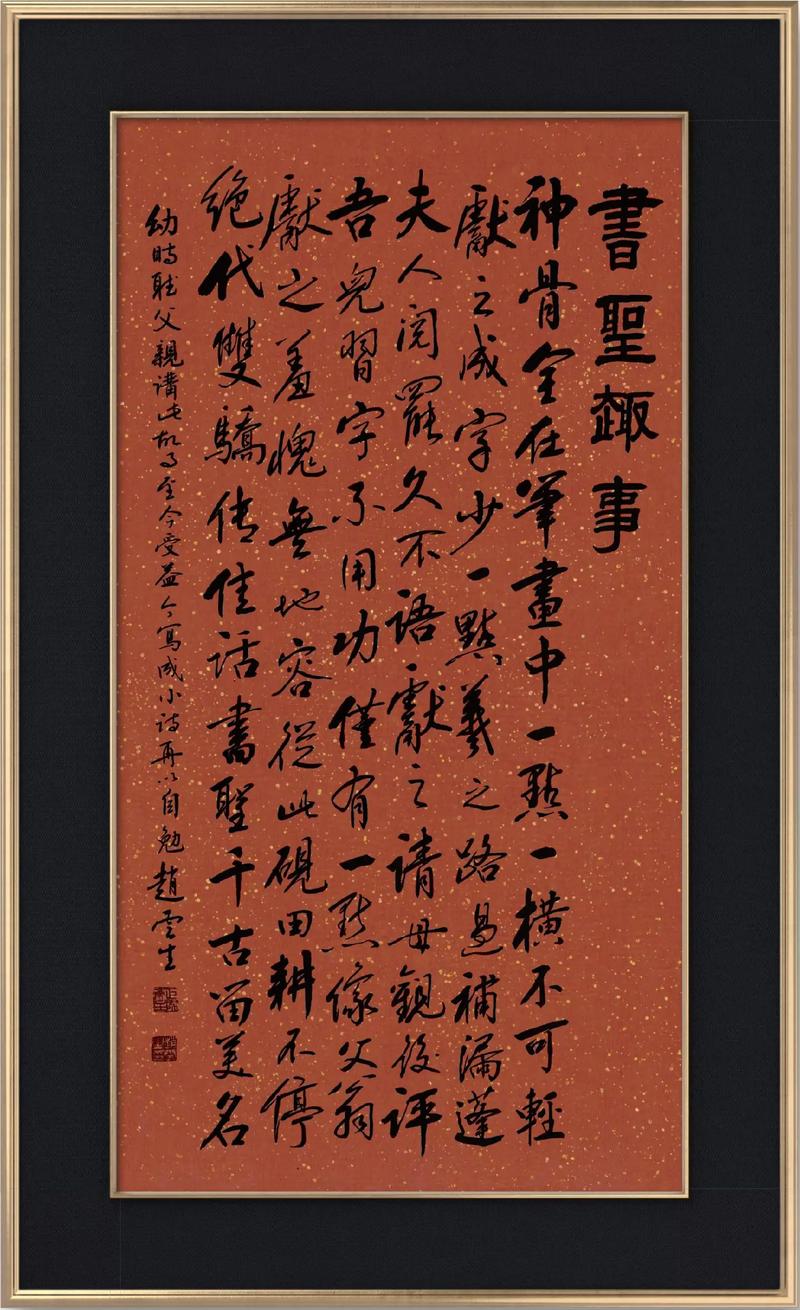 書聖趣事
神骨全在筆畫中一點一橫不可輕
獻之成字少一點羲之路過補漏蓬
夫人閱罷久不語獻之請母觀後評
吾兒習字不用功僅有一點像父翁
獻之羞愧無地容從此硯田耕不停
絕代雙驕傳佳話書聖千古留美名
幼時聽父親講此故事至今受益今寫成小詩再以自勉趙雲生